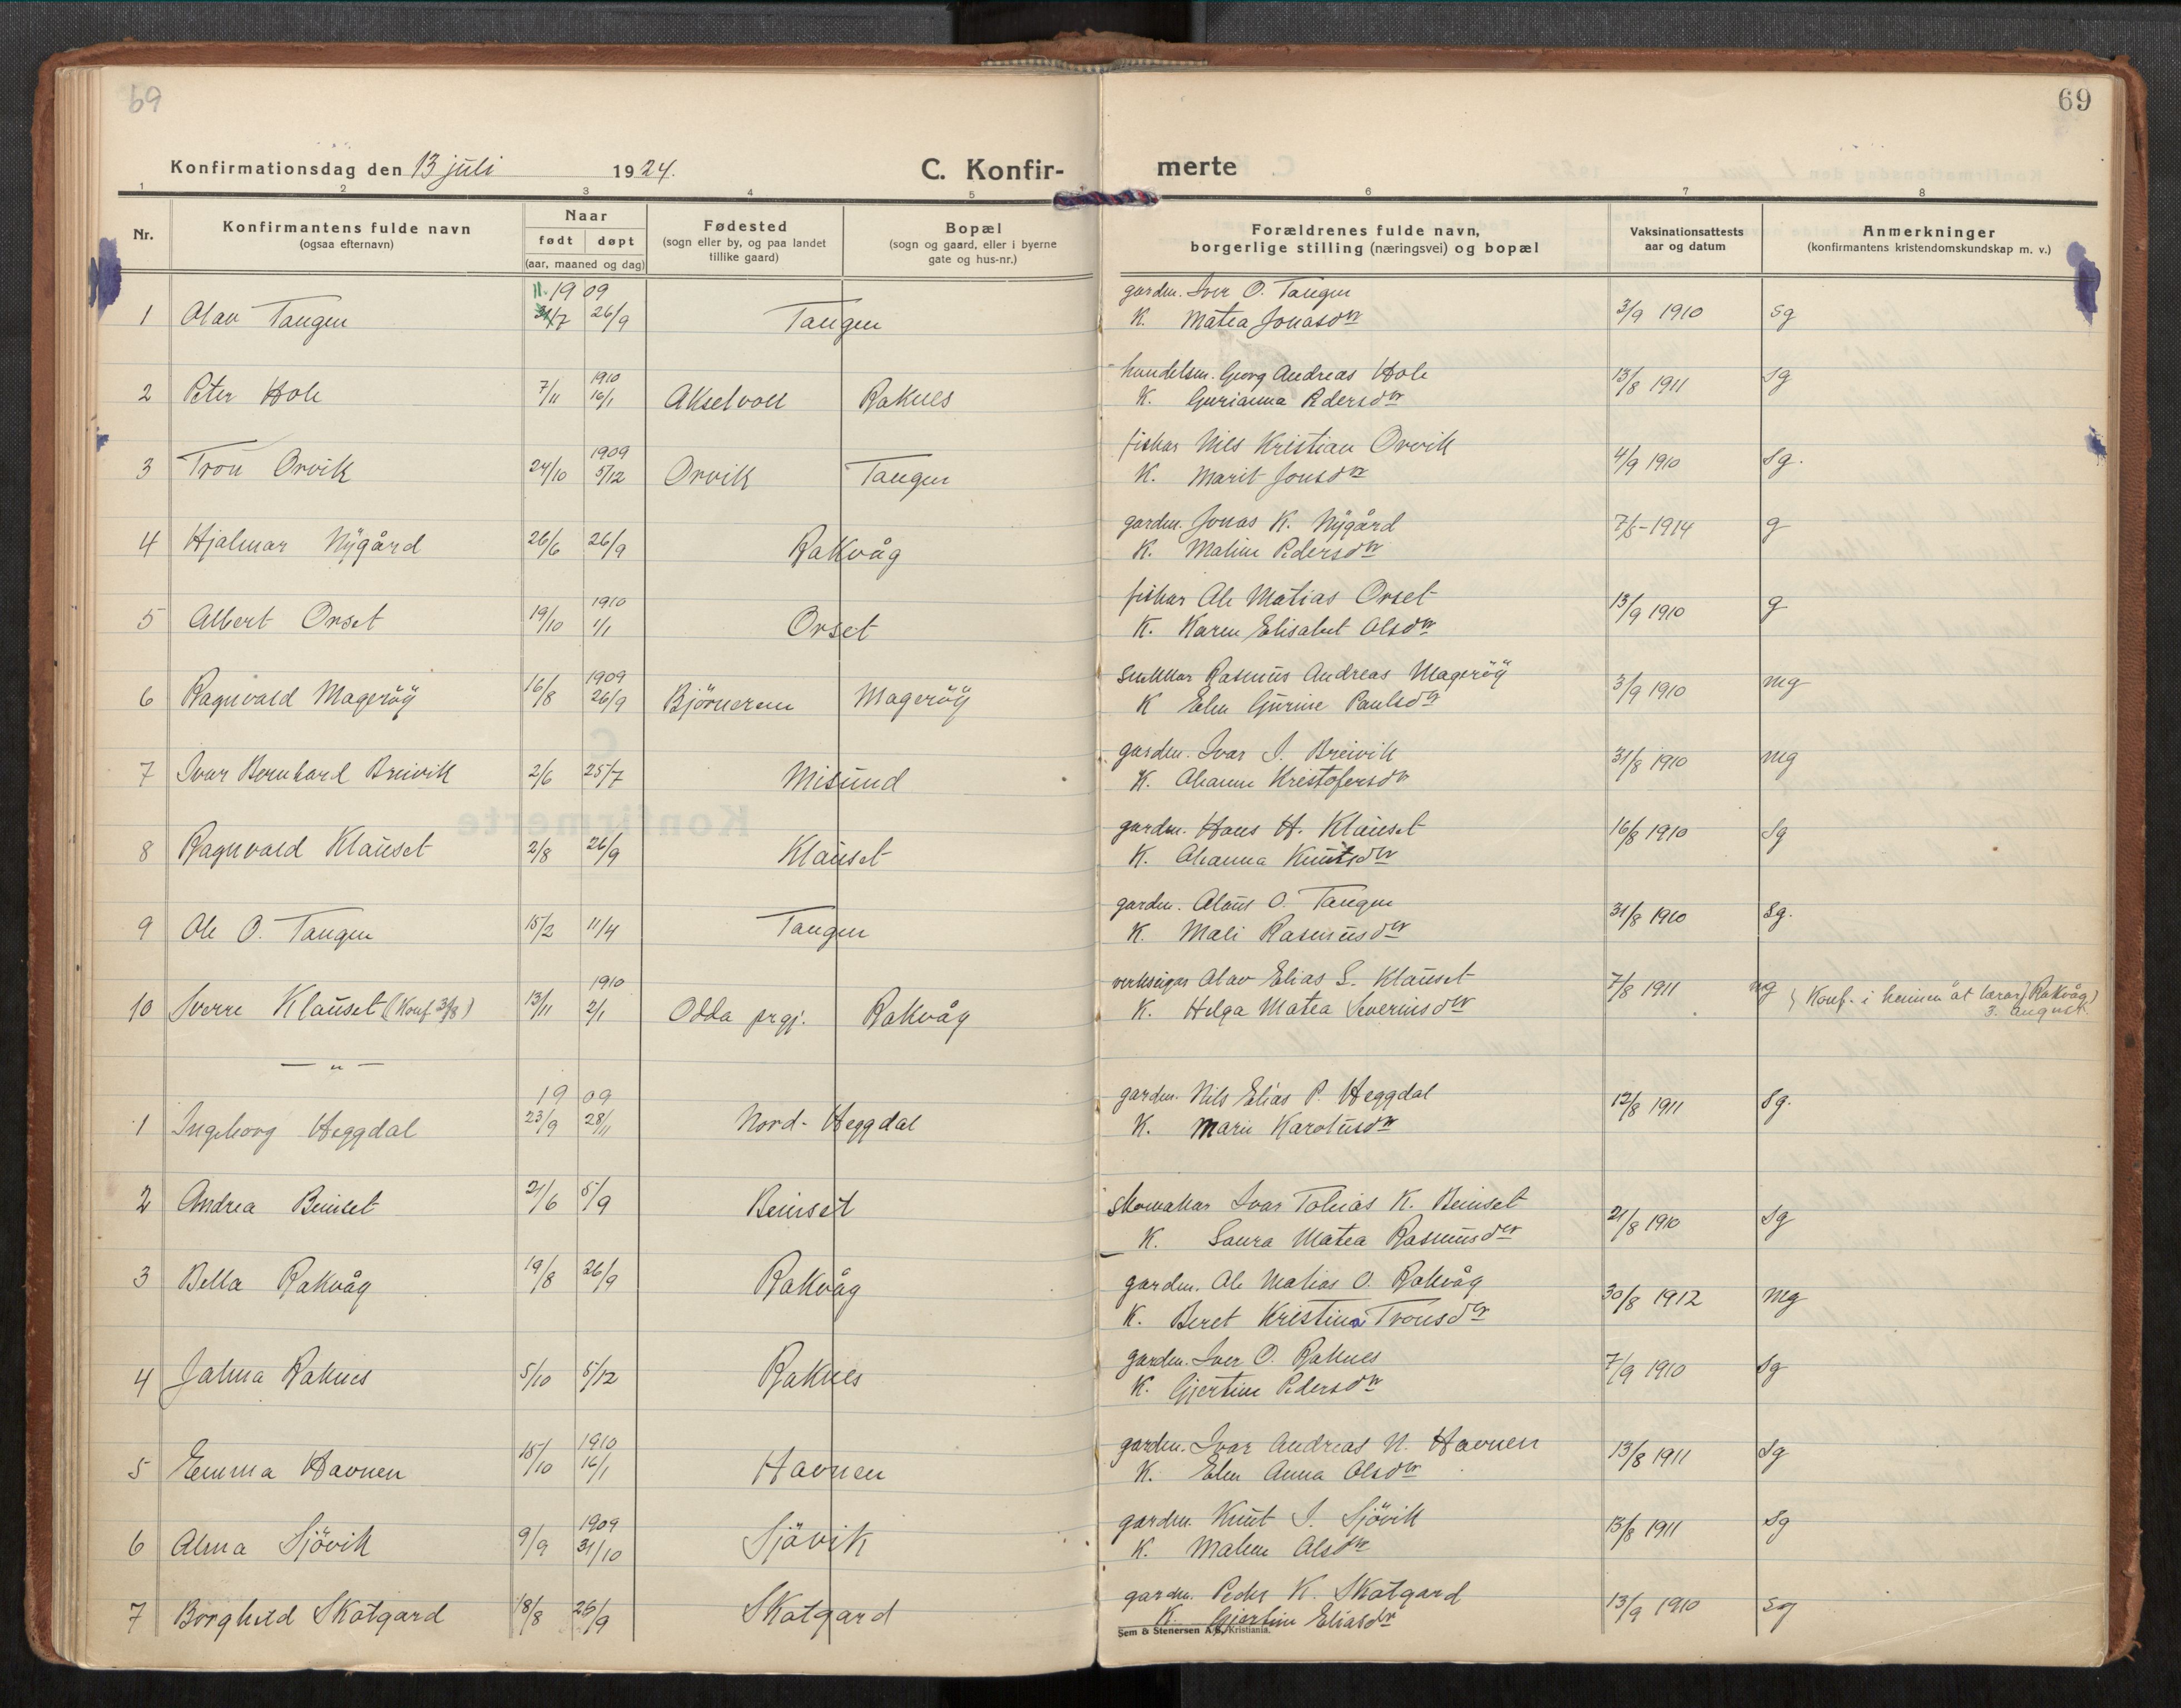 69
69
Konfirmationsdag den 13 juli 1924. C. Konfir- merte
1 2 3 4 5 6 7 8
Nr. Konfirmantens fulde navn (ogsaa efternavn) Naar født døpt (aar, maaned og dag) Fødested (sogn eller by, og paa landet tillike gaard) Bopæl (sogn og gaard, eller i byerne gate og hus-nr.) Forældrenes fulde navn, borgerlige stilling (næringsvei) og bopæl Vaksinationsattests aar og datum Anmerkninger (konfirmantens kristendomskundskap m. v.)
11. 19 09 gardm. Iver O. Tangen
1 Olav Tangen 31/7 26/9 Tangen K. Matea Jonasdtr 3/9 1910 Sg
1910 handelsm. Georg Andreas Hole
2 Peter Hole 7/11 16/1 Akselvoll Raknes K. Gurianna Pedersdtr 13/8 1911 Sg
1909 fiskar Nils Kristian Orvik
3 Tron Orvik 24/10 5/12 Orvik Tangen K. Marit Jonsdtr 4/9 1910 Sg.
gardm. Jonas K. Nygård
4 Hjalmar Nygård 26/6 26/9 Rakvåg K. Maline Pedersdtr 7/5-1914 g
1910 fiskar Ole Matias Orset
5 Albert Orset 19/10 1/1 Orset K. Karen Elisabet Olsdtr 13/9 1910 g
1909 snikkar Rasmus Andreas Magerøy
6 Ragnvald Magerøy 16/8 26/9 Bjørnerem Magerøy K Elen Gurine Paulsdtr 3/9 1910 mg
gardm. Ivar I. Breivik
7 Ivar Bernhard Breivik 2/6 25/7 Misund K. Olianna Kristofersdtr 31/8 1910 mg
gardm. Hans H. Klauset
8 Ragnvald Klauset 2/8 26/9 Klauset K. Olianna Knutsdtr 16/8 1910 Sg
gardm. Olaus O. Tangen
9 Ole O. Tangen 15/2 11/4 Tangen K. Mali Rasmusdtr 31/8 1910 Sg.
1910 verkseigar Olav Elias S. Klauset
10 Sverre Klauset (Konf. 3/8) 13/11 2/1 Odda prgj. Rakvåg K. Helga Matea Severinsdtr 7/8 1911 ng (Konf. i heimen åt lærar Rakvåg)
3. august.
— " —
19 09 gardm. Nils Elias P. Heggdal
1 Ingeborg Heggdal 23/9 28/11 Nord-Heggdal K. Marie Karolusdtr 12/8 1911 Sg.
skomakar Ivar Tobias K. Beinset
2 Andrea Beinset 21/6 5/9 Beinset K. Laura Matea Rasmusdtr 21/8 1910 Sg
gardm. Ole Matias O. Rakvåg
3 Bella Rakvåg 19/8 26/9 Rakvåg K. Beret Kristina Tronsdtr 30/8 1912 mg
gardm. Iver O. Raknes
4 Jalma Raknes 5/10 5/12 Raknes K. Gjertine Pedersdtr 7/9 1910 Sg
1910 gardm. Ivar Andreas N. Havnen
5 Emma Havnen 15/10 16/1 Havnen K. Elen Anna Olsdtr 13/8 1911 Sg
1909 gardm. Knut I. Sjøvik
6 Alma Sjövik 9/9 31/10 Sjövik K. Malene Olsdtr 13/8 1911 Sg
gardm. Peder K. Skotgard
7 Borghild Skotgard 18/8 26/9 Skotgard K. Gjertine Eliasdtr 13/9 1910 Sg
Sem & Stenersen A/S, Kristiania.